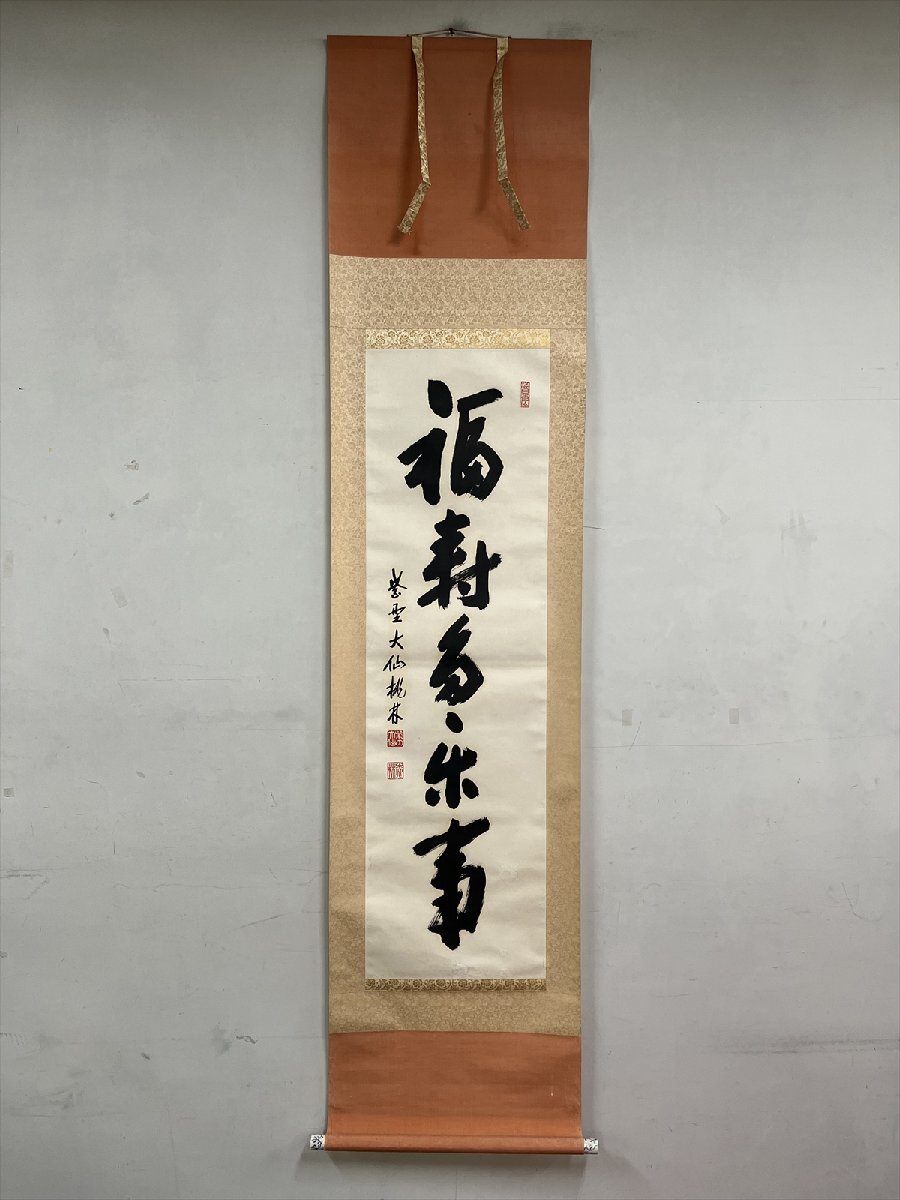 福寿多楽事
紫野大仙桃林